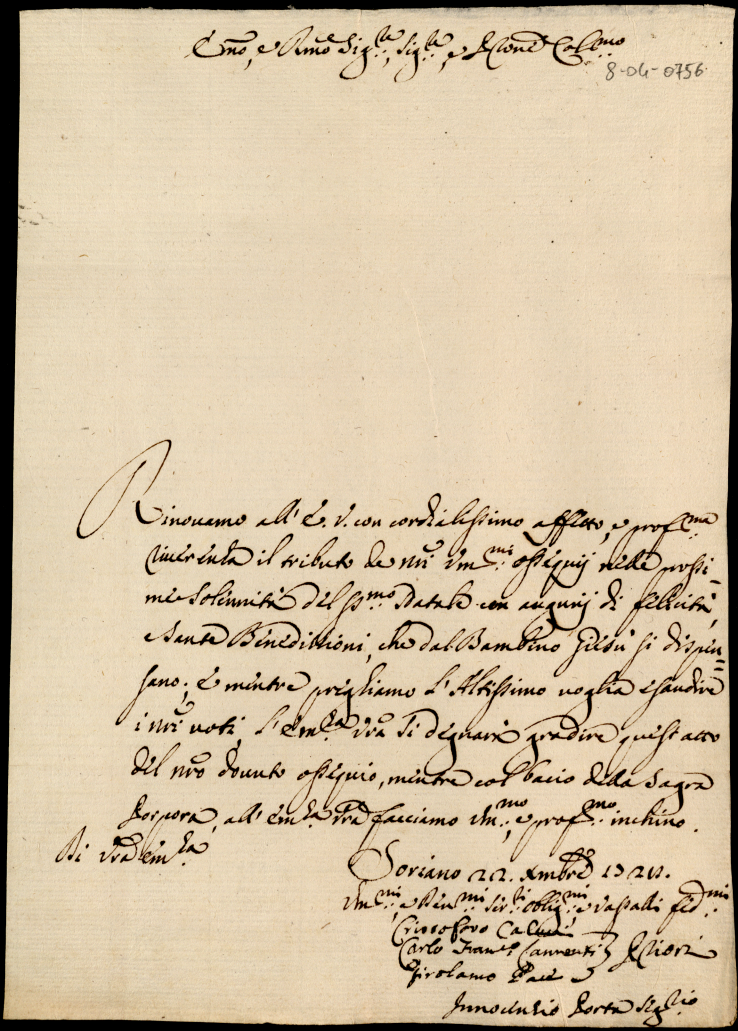 Emo, e Rmo Sig.re, Sig.re, e Prone Col.mo
8-04-0756
Rinouamo all' E. V. con cordialissimo affetto, e prof.ma
riuerenza il tributo de nri Vm.mi ossequij nelle prossi=
me Solennità del SS.mo Natale con augurij di felicità,
e Sante Benedittioni, che dal Bambino Giesù si dispen=
sano; E mentre preghiamo l'Altissimo voglia esaudire
i nri voti, l'Em.za Vra si degnarà gradire quest atto
del nro douuto ossequio, mentre col bacio della Sagra
Porpora, all' Em.za Vra facciamo Vm.mo, e prof.mo inchino.
Di Vra Em.za
Soriano 22. Xmbre
Vm.mi, e Deu.mi Ser.ri oblig.mi, e Vassalli fed.mi
Carlo Fran.co Laurenti Priori
Girolamo Pace
Innocenzio Porta Seg.rio